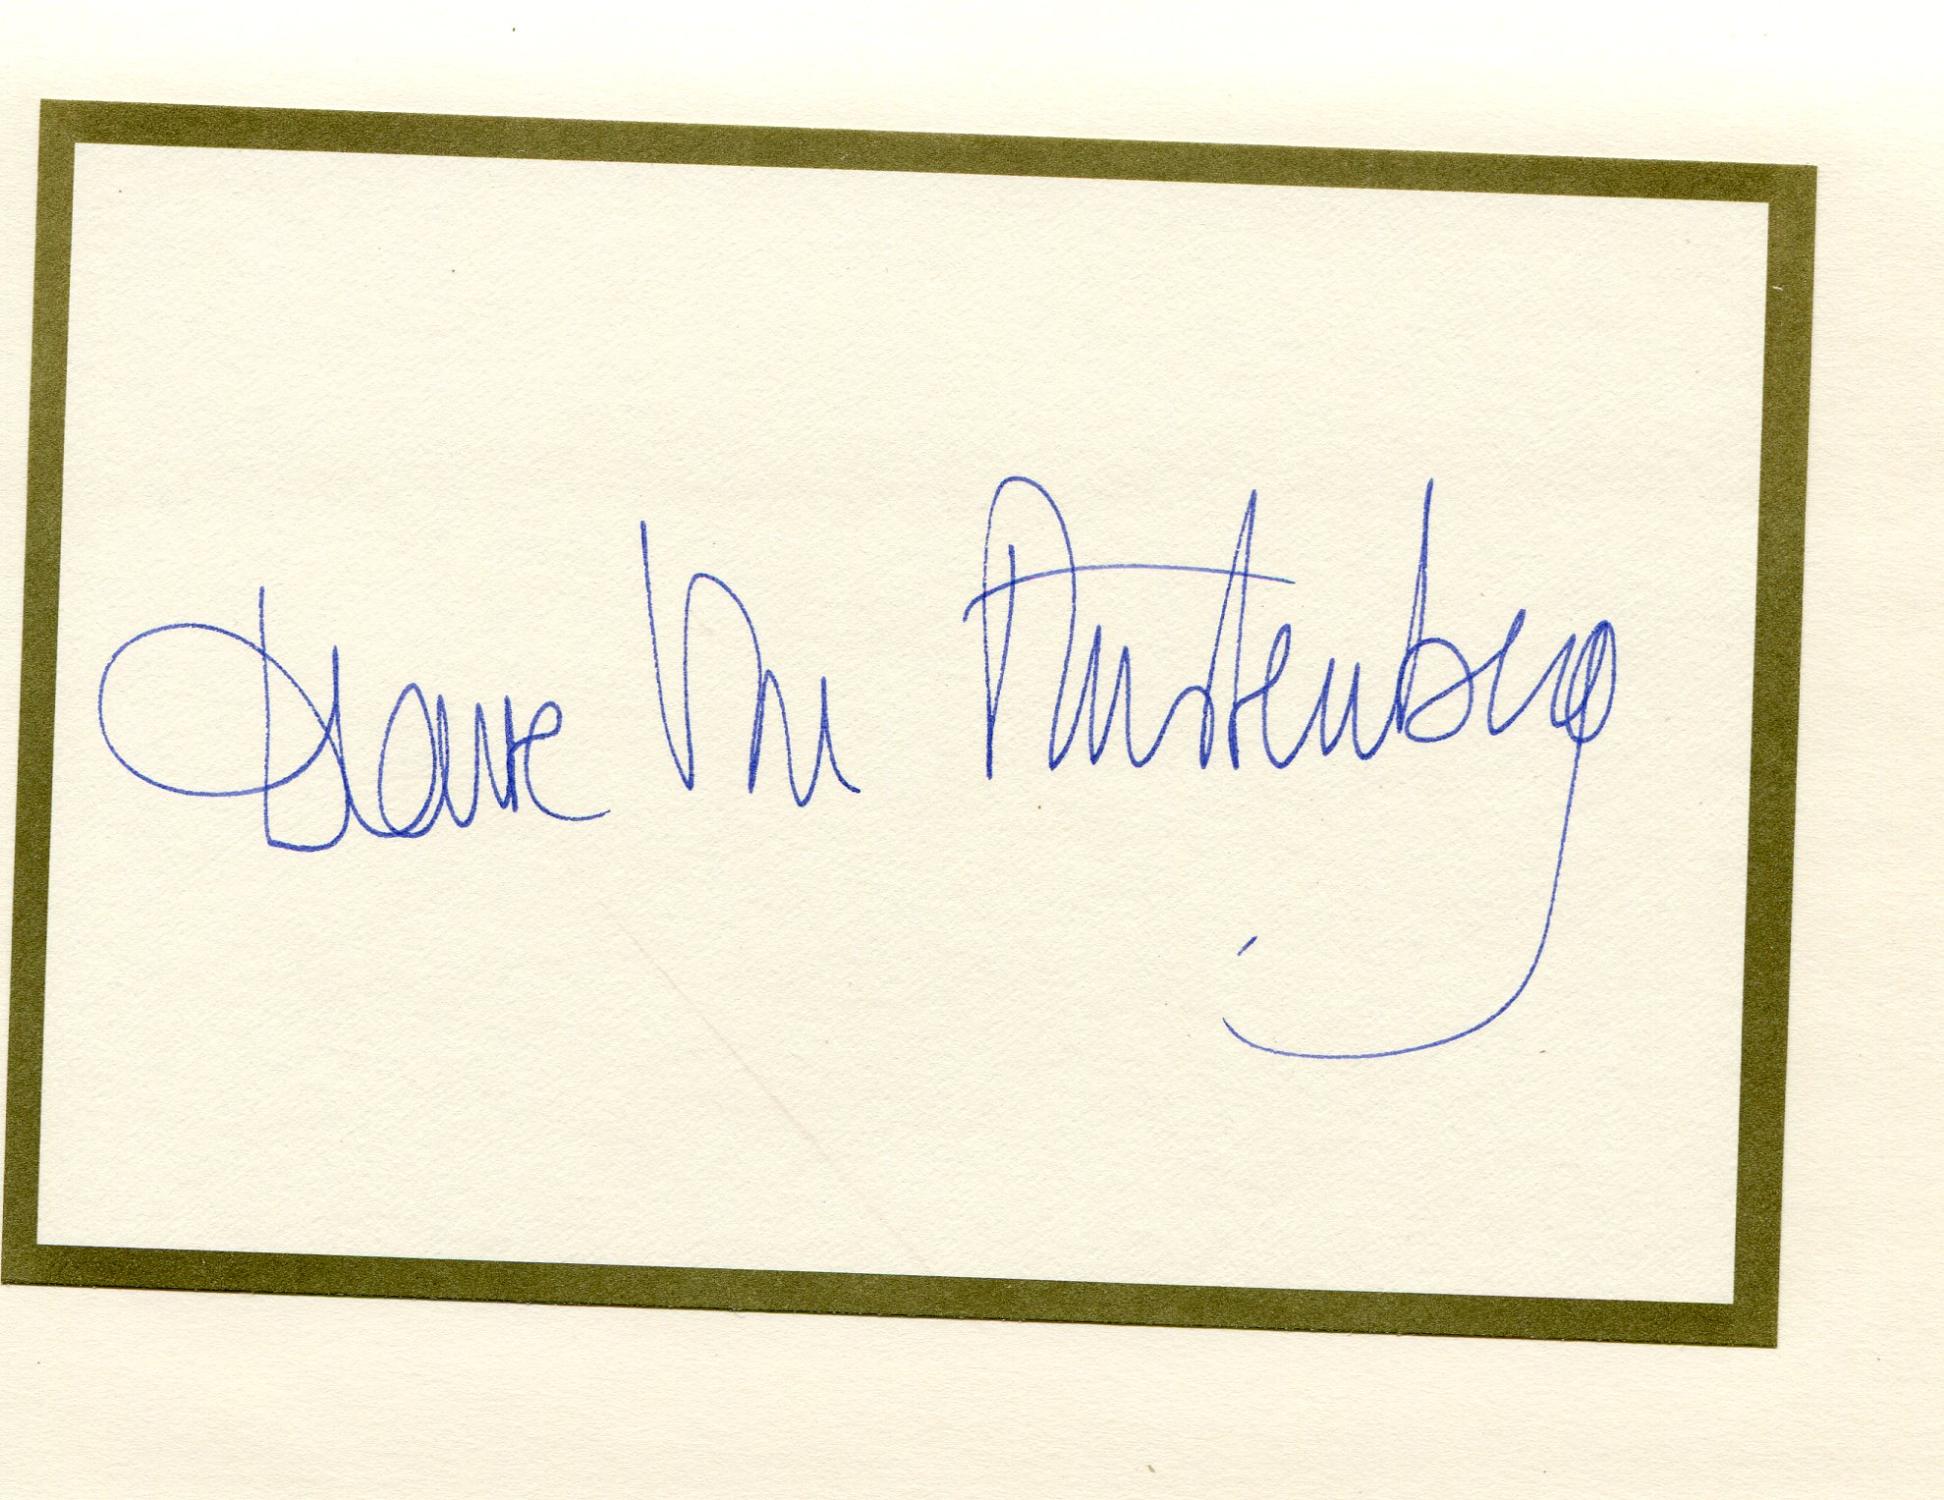 Diane Von Furstenberg